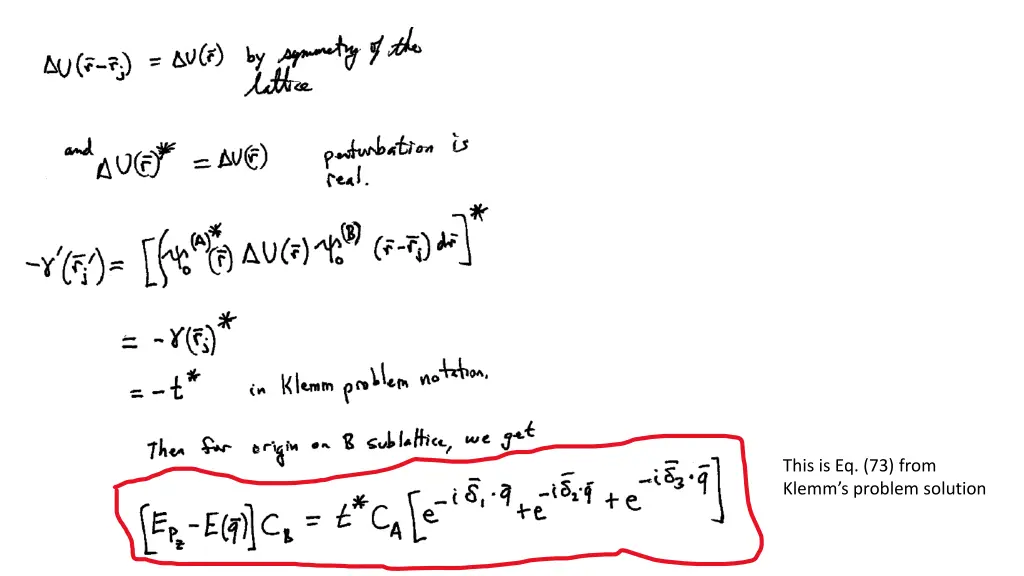 ΔU(r̄−r̄ⱼ) = ΔU(r̄) by symmetry of the
lattice
and ΔU(r̄)* = ΔU(r̄) perturbation is
real.
−γ'(r̄ⱼ') = [∫ψ₀⁽ᴬ⁾*(r̄) ΔU(r̄) ψ₀⁽ᴮ⁾ (r̄−r̄ⱼ) dr̄]*
= −γ(r̄ⱼ)*
= −t* in Klemm problem notation.
Then for origin on B sublattice, we get
[E_{P_z} − E(q̄)] C_B = t* C_A [e^{−i δ̄₁·q̄} + e^{−i δ̄₂·q̄} + e^{−i δ̄₃·q̄}]
This is Eq. (73) from
Klemm’s problem solution